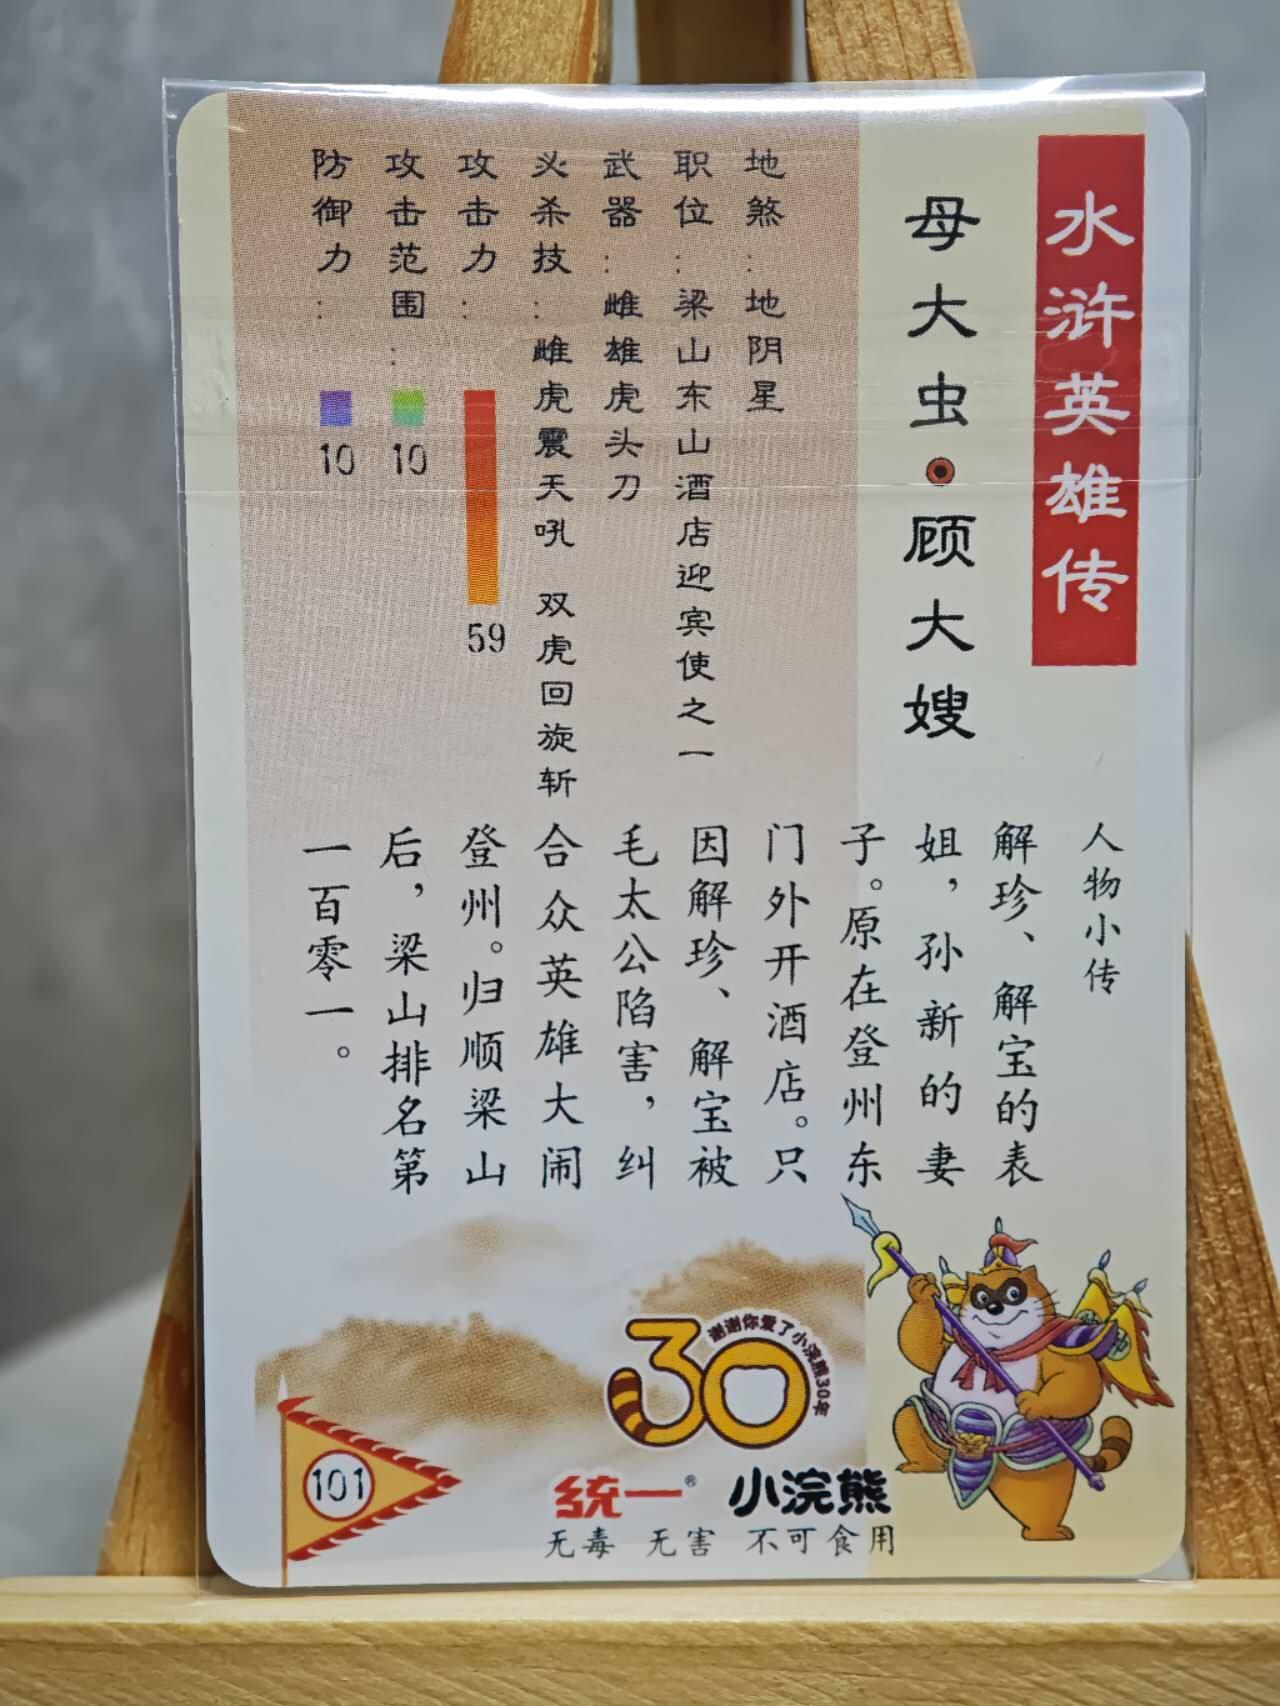 水浒英雄传
母大虫·顾大嫂
地煞：地阴星
职位：梁山东山酒店迎宾使之一
武器：雌雄虎头刀
必杀技：雌虎震天吼 双虎回旋斩
攻击力：
59
攻击范围：
10
防御力：
10
人物小传
解珍、解宝的表
姐，孙新的妻
子。原在登州东
门外开酒店。只
因解珍、解宝被
毛太公陷害，纠
合众英雄大闹
登州。归顺梁山
后，梁山排名第
一百零一。
101
30
谢谢你爱了小浣熊30年
統一® 小浣熊
无毒 无害 不可食用